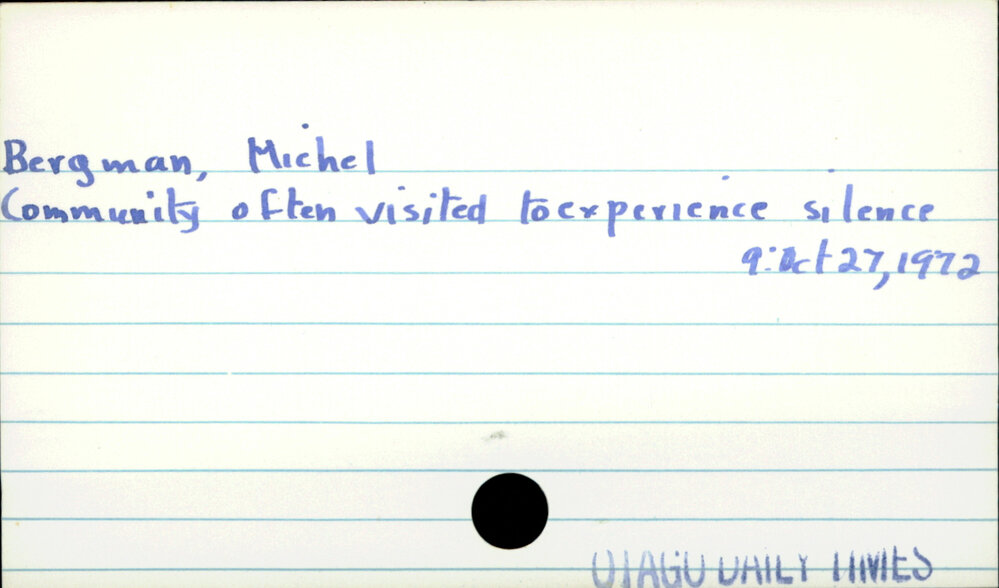 Bergman, Michel
Community often visited to experience silence
9: Oct 27, 1972
OTAGO DAILY TIMES